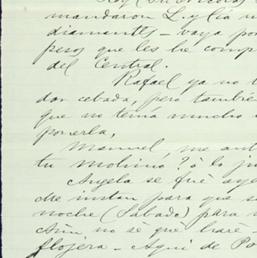 mandaron L. y
diamantes — vaya por
pesos que les he comp
del Central.
Rafael ya no t
dar cebada, pero tambié
que no tenía mucho
ponerla,
Manuel, me ant
tu molino? ó lo ju
Angela se fué aye
che instan para que s
noche (Sábado) para
Aún no sé que haré —
flojera — Aquí de Po